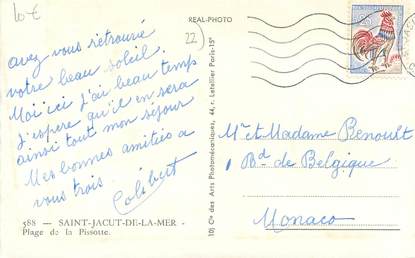 10 €
REAL-PHOTO
22)
avez vous retrouvé
votre beau soleil.
Moi ici j'ai beau temps
J'espère qu'il en sera
ainsi tout mon séjour
Mes bonnes amitiés à
vous trois.
Colibert
588 — SAINT-JACUT-DE-LA-MER -
Plage de la Pissotte.
10) Cie des Arts Photomécaniques, 44, r. Letellier Paris-15e
Mr et Madame Renoult
Bd de Belgique
Monaco